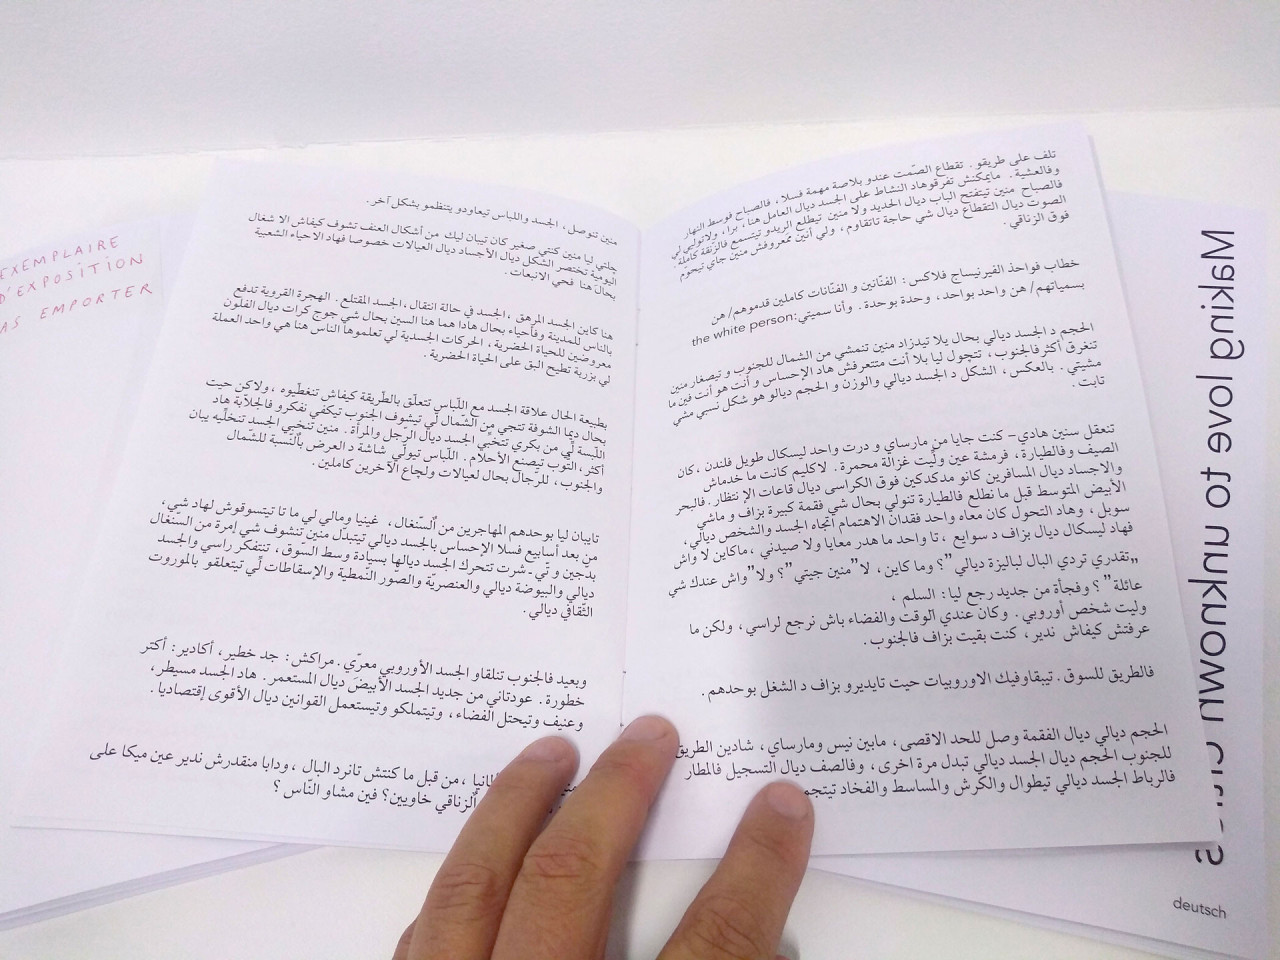 تلف على طريقو. تقطاع الصّمت عندو بلاصة مهمة فسلا، فالصباح فوسط النهار
وفالعشية. مايمكنش تفرقوهاد النشاط على الجسد ديال العامل هنا، برا، ولاتوليي لي
فالصباح منين تيتفتح الباب ديال الحديد ولا منين تيطلع الريدو تيتسمع فالزنقة كاملة.
الصوت ديال التقطاع ديال شي حاجة تاتقاوم، ولي أنين تمعروفش منين جاي تيحوم
فوق الزناقي.
خطاب فواحذ الفيرنيساج فلاكس: الفنّانين و الفنّانات كاملين قدموهم/هن
بسمياتهم/ هن واحد بواحد، وحدة بوحدة. وأنا سميتي:the white person
الحجم د الجسد ديالي بحال يلا تيدزاد منين تنمشي من الشمال للجنوب و تيصغار منين
تنغرق أكثرفالجنوب، تتجول ليا بلا أنت متتعرفش هاد الإحساس و أنت هو أنت فين ما
مشيتي. بالعكس، الشكل د الجسد ديالي والوزن و الحجم ديالو هو شكل نسبي مشي
ثابت.
تنعقل سنين هادي– كنت جايا من مارساي و درت واحد ليسكال طويل فلندن، كان
الصيف وفالطيارة، فرمشة عين ولّيت غزالة محمرة. لاكليم كانت ما خدماش
والاجساد ديال المسافرين كانو مدكدكين فوق الكراسي ديال قاعات الإ نتظار. فالبحر
الأبيض المتوسط قبل ما نطلع فالطيارة تنولي بحال شي فقمة كبيرة بزاف و ماشي
سوبل، وهاد التحول كان معاه واحد فقدان الاهتمام اتجاه الجسد والشخص ديالي،
فهاد ليسكال ديال بزاف د سوايع، تا واحد ما هدر معايا ولا صيدني، ماكاين لا واش
„تقدري تردي البال لباليزة ديالي”؟ وما كاين، لا”منين جيتي”؟ ولا”واش عندك شي
عائلة”؟ وفجأة من جديد رجع ليا: السلم ،
وليت شخص أوروبي. وكان عندي الوقت والفضاء باش نرجع لراسي، ولكن ما
عرفتش كيفاش ندير، كنت بقيت بزاف فالجنوب.
فالطريق للسوق. تيبقاوفيك الاوروبيات حيت تايديرو بزاف د الشغل بوحدهم.
الحجم ديالي ديال الفقمة وصل للحد الاقصى، مابين نيس ومارساي، شادين الطريق
للجنوب الحجم ديال الجسد ديالي تبدل مرة اخرى، وفالصف ديال التسجيل فالمطار
فالرباط الجسد ديالي تيطوال والكرش والمساسط والفخاد
منين تنوصل، الجسد واللباس تيعاودو يتنظمو بشكل آخر.
جاتني ليا منين كنتي صغير كان تيبان ليك من أشكال العنف تشوف كيفاش الا شغال
اليومية تختصر الشكل ديال الأجساد ديال العيالات خصوصا فهاد الاحياء الشعبية
بحال هنا فحي الانبعات.
هنا كاين الجسد المرهق، الجسد في حالة انتقال، الجسد المقتلع. الهجرة القروية تدفع
بالناس للمدينة وفأحياء بحال هادا هما هنا السين بحال شي جوج كرات ديال الفلون
معروضين للحياة الحضرية، الحركات الجسدية لي تعلموها الناس هنا هي واحد العملة
لي بزربة تطيح البق على الحياة الحضرية.
بطبيعة الحال علاقة الجسد مع اللّباس تتعلّق بالطّريقة كيفاش تنغطّيوه، ولاكن حيت
بحال ديما الشوفة تتجي من الشّمال لّي تيشوف الجنوب تيكفي نفكرو فالجلاّبة هاد
اللّبسة لّي من بكري تتخبّي الجسد ديال الرّجل والمرأة. منين تتخبي الجسد تتخلّيه يبان
أكثر، التّوب تيصنع الأحلام. اللّباس تيولّي شاشة د العرض بالنّسبة للشّمال
والجنوب، للرّجال بحال لعيالات ولجاع الآخرين كاملين.
تايبان ليا بوحدهم المهاجرين من السّنغال، غينيا ومالي لي ما تا تيتسوقوش لهاد شي،
من بعد أسابيع فسلا الإحساس بالجسد ديالي تيتبدل منين تنشوف شي إمرة من السّنغال
بدجين و تي-شرت تتحرك الجسد ديالها بسيادة وسط السوق، تنتفكر راسي والجسد
ديالي والبيوضة ديالي والعنصريّة والصّور النّمطية والإسقاطات لّي تيتعلقو بالموروث
الثّقافي ديالي.
وبعيد فالجنوب تنلقاو الجسد الأوروبي معرّي. مراكش: جد خطير، أكادير: أكتر
خطورة. عودتاني من جديد الجسد الأبيض ديال المستعمر. هاد الجسد مسيطر،
وعنيف وتيحتل الفضاء، وتيتملكو وتيستعمل القوانين ديال الأقوى إقتصاديا.
، من قبل ما كنتش تانرد البال، ودابا منقدرش ندير عين ميكا على
الزناقي خاويين؟ فين مشاو النّاس؟
EXEMPLAIRE
D'EXPOSITION
PAS EMPORTER
Making love to unknown
deutsch